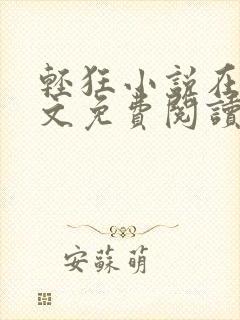 輕狂小說在
文免費閱讀
安蘇萌